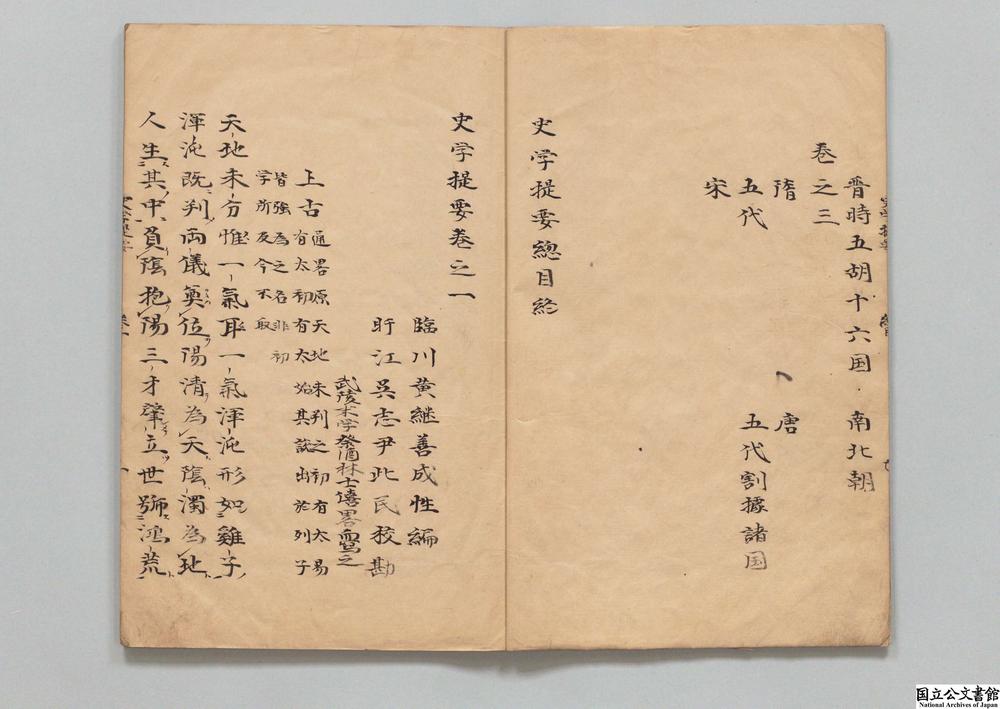 晋時五胡十六国 南北朝
卷之三
隋 唐
五代 五代割據諸国
宋
史学提要總目終
史学提要卷之一
臨川黄継善成性編
盱江吳志尹此民校勘
武陵末学癸酉林士僖畧寫之
上古 通畧原天地未判之初有太易
有太初有太始其說出於列子
皆強為之名非初
学所及今不取
天地未分惟一氣耳一氣渾沌形如雞子
渾沌既判両儀奠位陽清為天陰濁為地
人生其中負陰抱陽三才肇立世號鴻荒
国立公文書館
National Archives of Japan